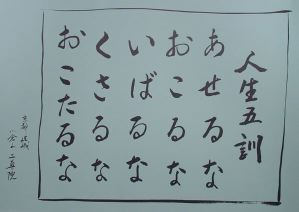 人生五訓
あせるな
おこるな
いばるな
くさるな
おこたるな
京都 嵯峨